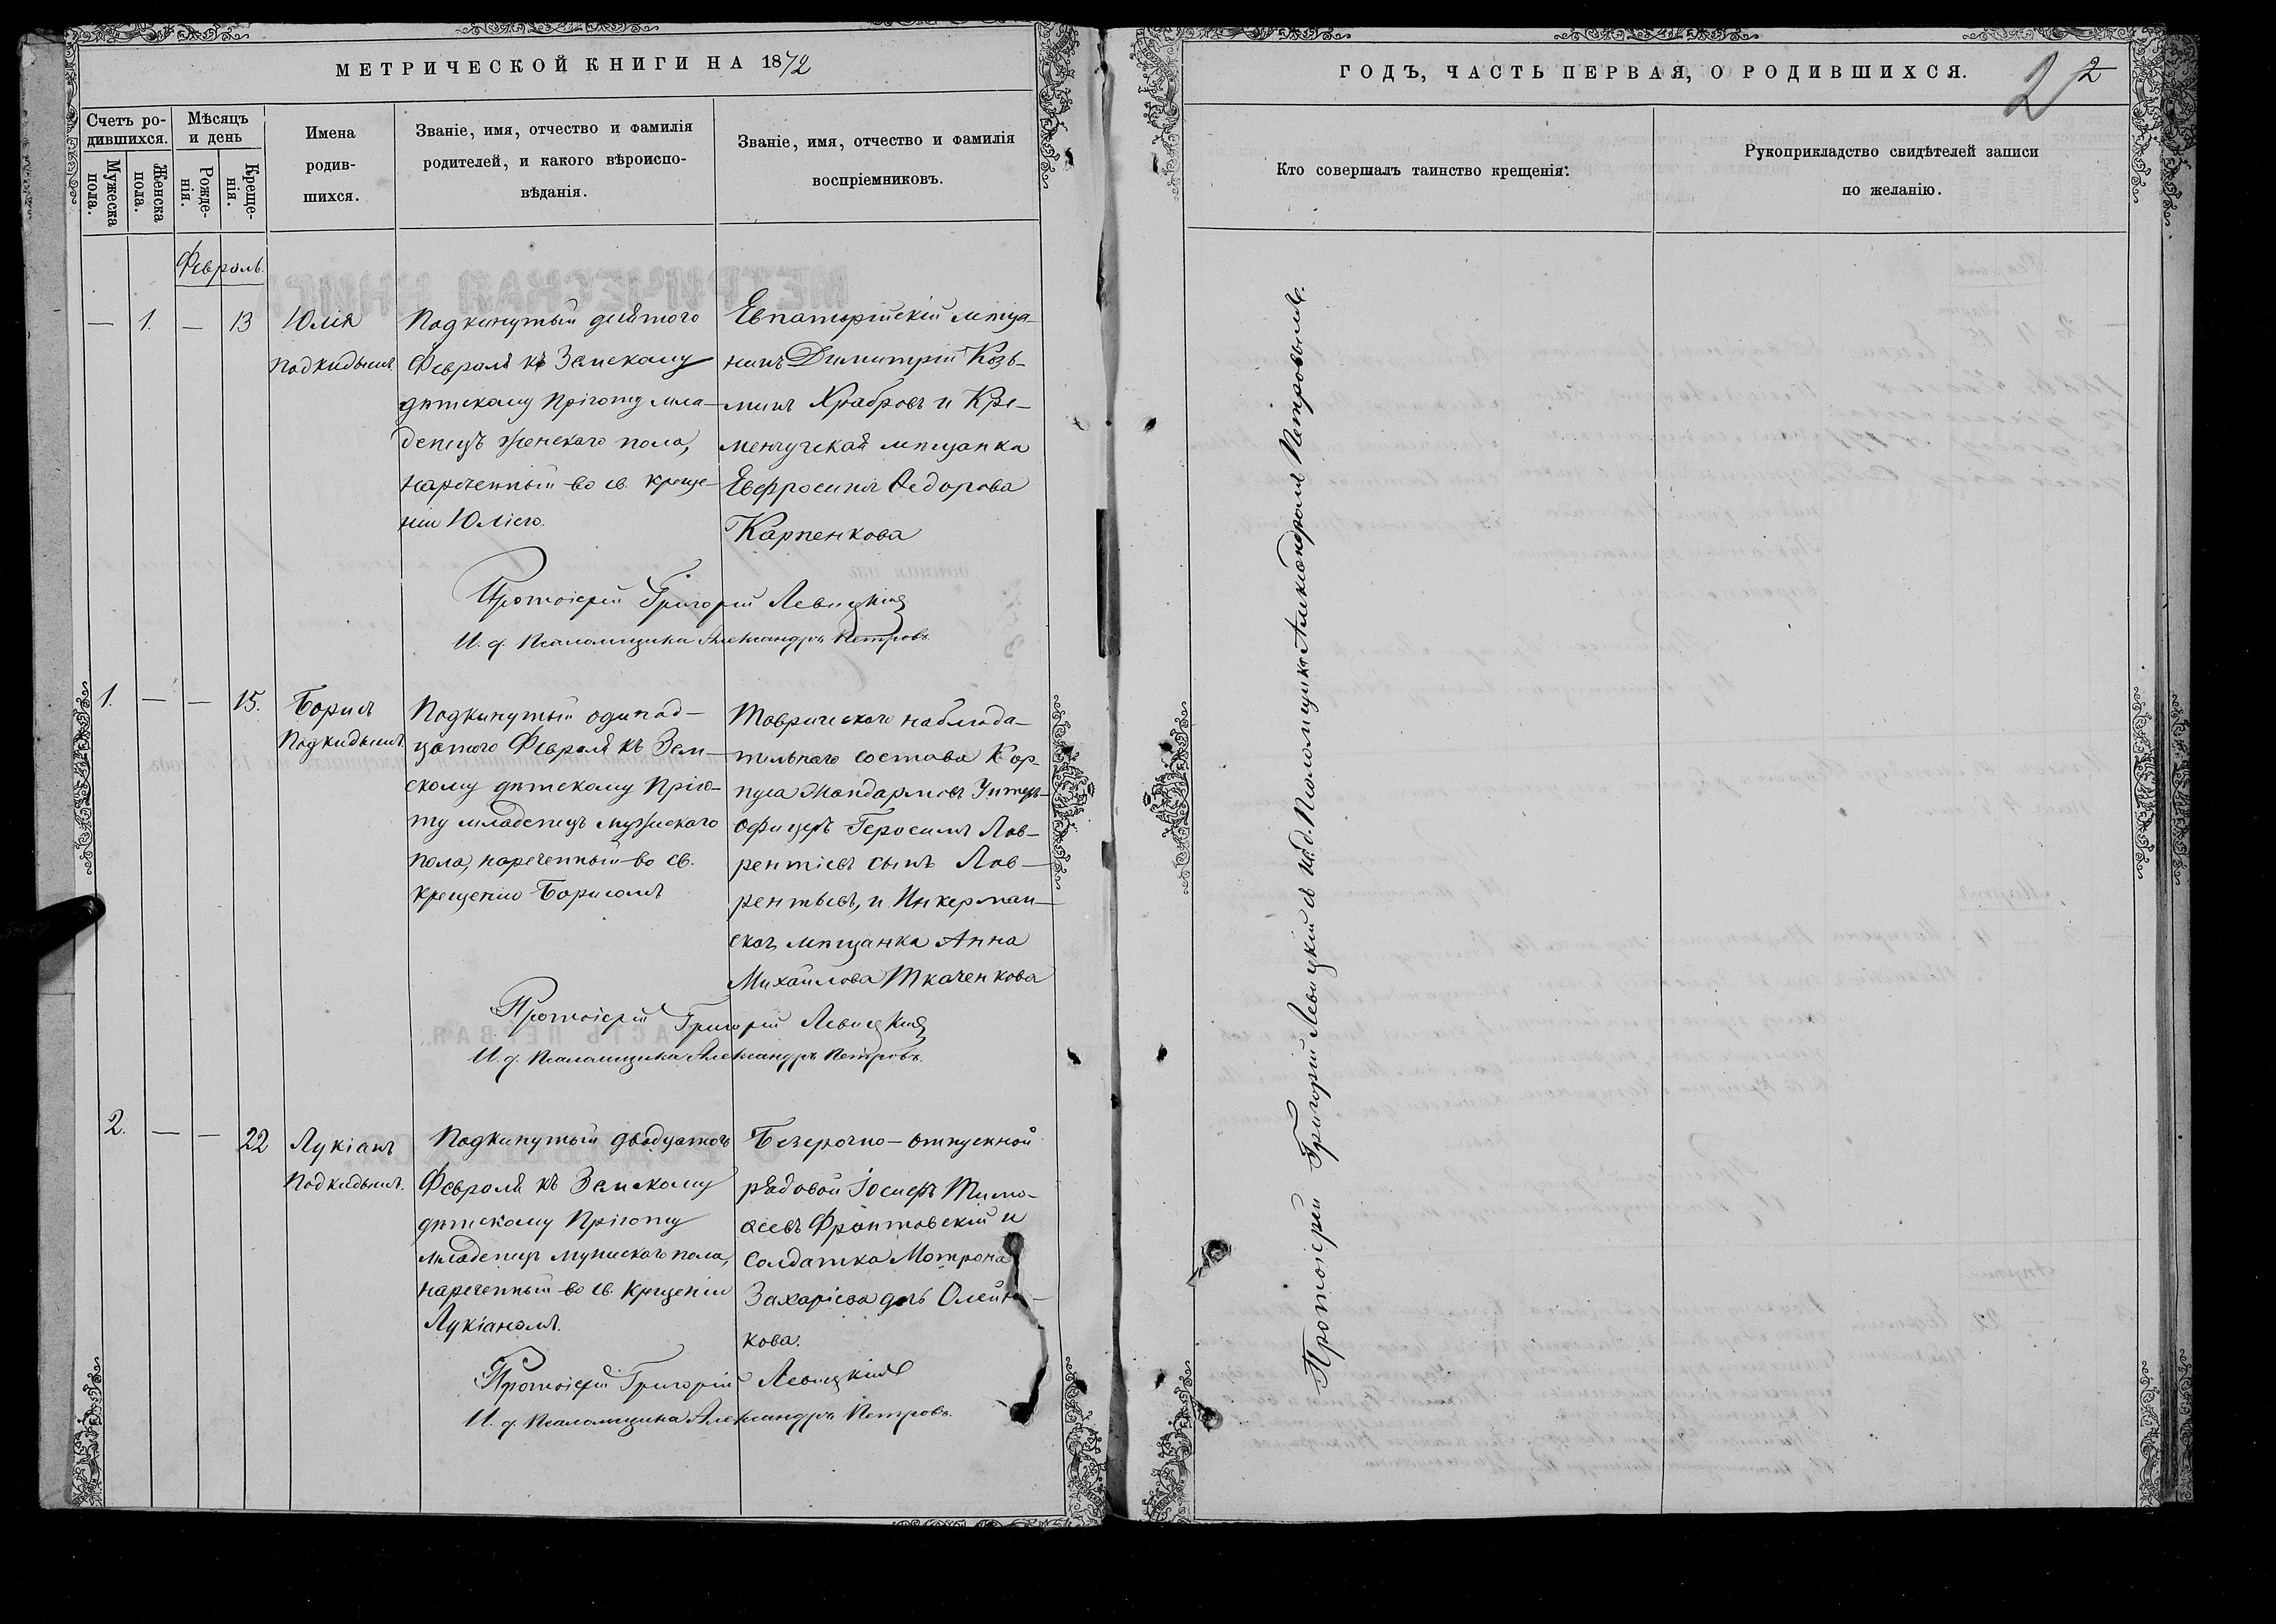 МЕТРИЧЕСКОЙ КНИГИ НА 1872
ГОДЪ, ЧАСТЬ ПЕРВАЯ, О РОДИВШИХСЯ.
2 2
Счетъ ро-
дившихся.
Мужеска
пола.
Женска
пола.
Мѣсяцъ
и день
Рожде-
нія.
Креще-
нія.
Имена
родив-
шихся.
Званіе, имя, отчество и фамилія
родителей, и какого вѣроиспо-
вѣданія.
Званіе, имя, отчество и фамилія
воспріемниковъ.
Кто совершалъ таинство крещенія:
Рукоприкладство свидѣтелей записи
по желанію.
Февраль.
— 1. — 13
Юлія
подкидышъ
Подкинутый девятого
Февраля къ Земскому
дѣтскому Пріюту мла-
денецъ женскаго пола,
нареченный во св. креще-
ніи Юліею.
Евпаторійскій мѣща-
нинъ Димитрій Козь-
минъ Храбровъ и Кре-
менчугская мѣщанка
Евфросинія Ѳедорова
Карпенкова
Протоіерей Григорій Левицкій
И. д. Псаломщика Александръ Петровъ.
1. — — 15.
Борисъ
Подкидышъ.
Подкинутый одинад-
цатого Февраля къ Зем-
скому дѣтскому Прію-
ту младенецъ мужескаго
пола, нареченный во св.
крещеніи Борисомъ
Таврическаго наблюда-
тельнаго состава Кор-
пуса Жандармовъ Унтеръ-
офицеръ Герасимъ Лав-
рентіевъ сынъ Лав-
рентьевъ, и Инкерман-
ская мѣщанка Анна
Михайлова Ткаченкова
Протоіерей Григорій Левицкій
И. д. Псаломщика Александръ Петровъ.
2. — — 22
Лукіанъ
Подкидышъ.
Подкинутый двадцатого
Февраля къ Земскому
дѣтскому Пріюту
младенецъ мужескаго пола,
нареченный во св. Крещеніи
Лукіаномъ.
Безсрочно-отпускной
рядовой Іосифъ Тимо-
ѳеевъ Фронтовскій и
солдатка Матрона
Захаріева дочь Олейни-
кова.
Протоіерей Григорій Левицкій
И. д. Псаломщика Александръ Петровъ.
Протоіерей Григорій Левицкій съ И. д. Псаломщика Александромъ Петровымъ.